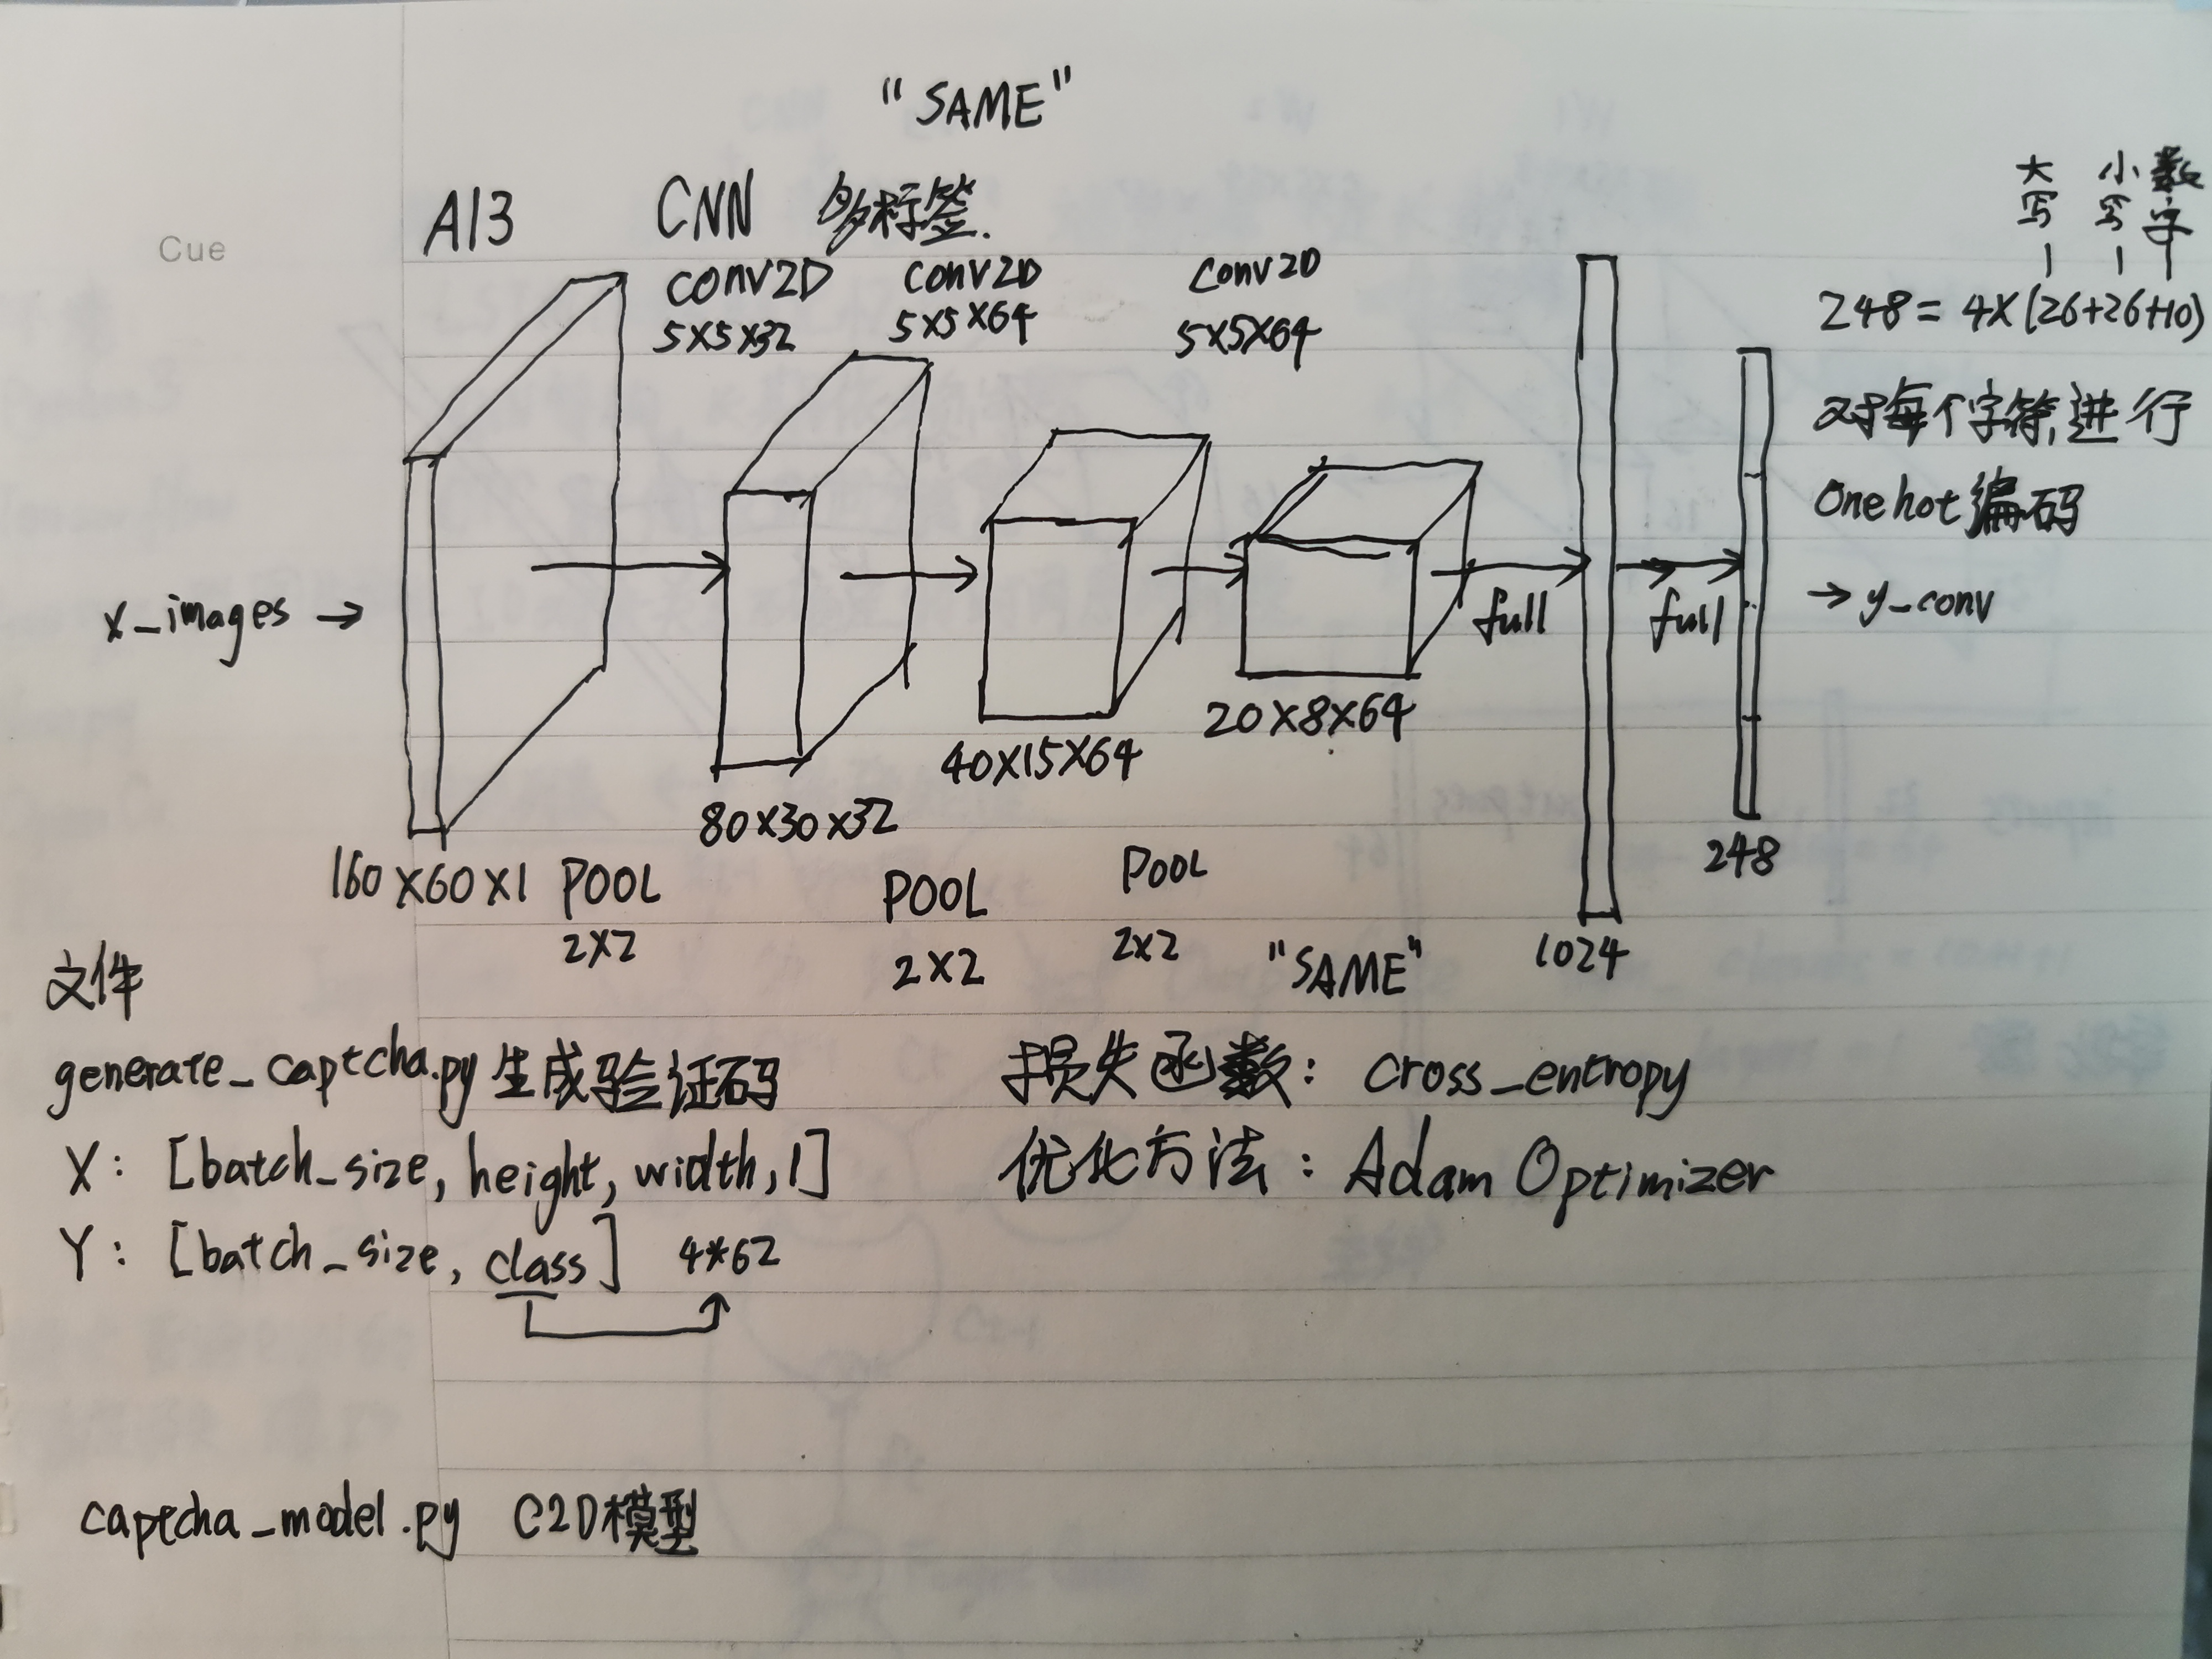 "SAME"
Cue
A13 CNN 多标签.
大写 小写 数字
conv2D conv2D conv2D
5×5×32 5×5×64 5×5×64
248 = 4×(26+26+10)
对每个字符进行
One hot 编码
x_images → full full → y_conv
20×8×64
40×15×64
80×30×32
248
160×60×1 POOL POOL POOL
2×2 2×2 2×2 "SAME" 1024
文件
generate_captcha.py 生成验证码
X: [batch_size, height, width, 1]
Y: [batch_size, class] 4*62
损失函数: cross_entropy
优化方法: Adam Optimizer
captcha_model.py C2D模型